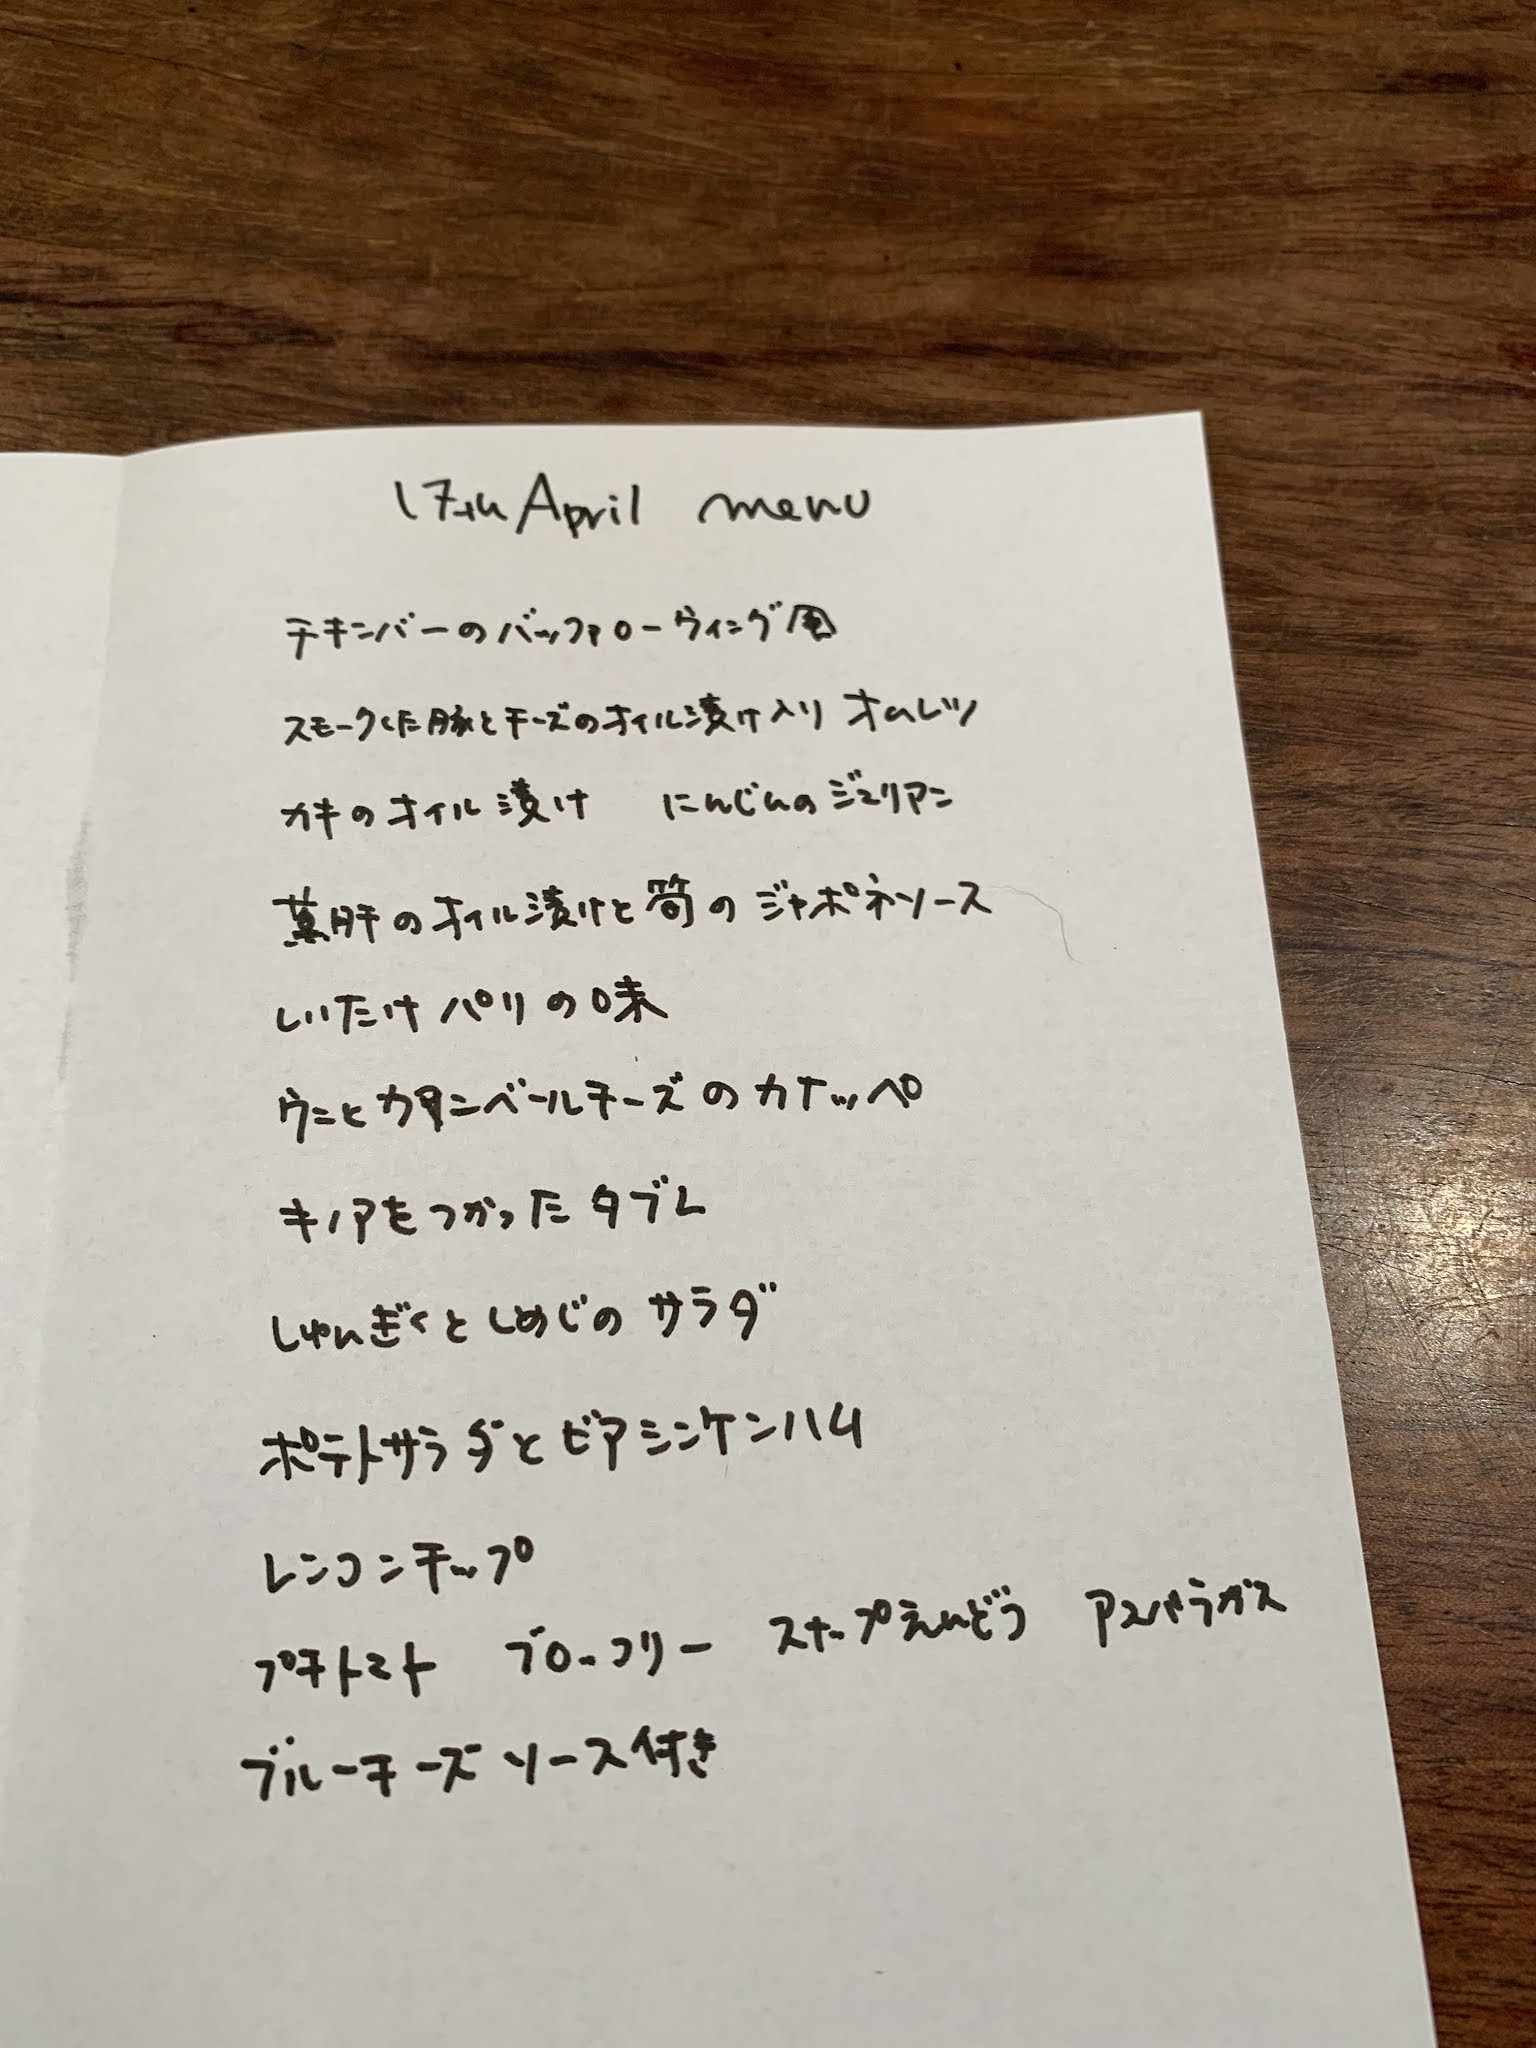 17th April menu
チキンバーのバッファローウィング風
スモークした豚とチーズのオイル漬け入り オムレツ
カキのオイル漬け にんじんのジュリアン
肝のオイル漬けと筍のジャポネソース
しいたけ パリの味
ウニとカマンベールチーズのカナッペ
キノアをつかったタブレ
しゅんぎくとしめじのサラダ
ポテトサラダとビアシンケンハム
レンコンチップ
プチトマト ブロッコリー スナップえんどう アスパラガス
ブルーチーズソース付き